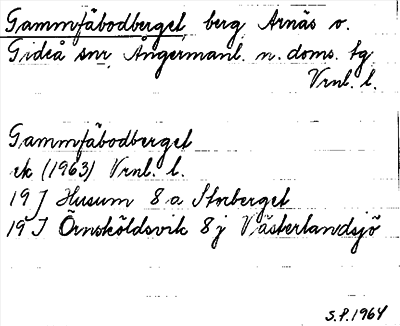 Gammfäbodberget, berg Arnäs o.
Gideå snr Ångermanl. n. doms. tg
Vrnl. l.
Gammfäbodberget
ek (1963) Vrnl. l.
19 J Husum 8 a Storberget
19 I Örnsköldsvik 8 j Västerlandsjö
S.P. 1964